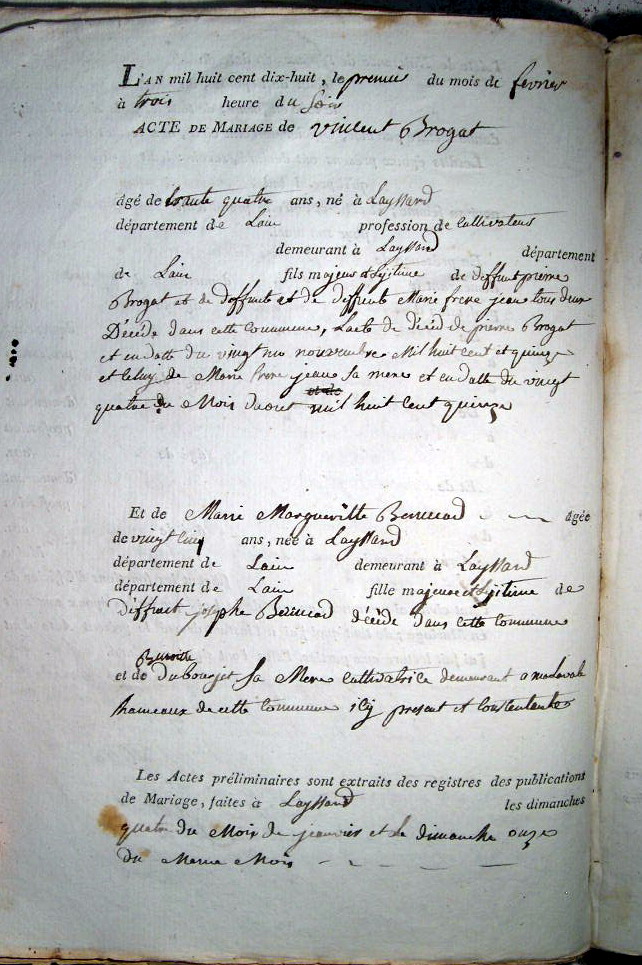 L'AN mil huit cent dix-huit, le premier du mois de fevrier
à trois heure du soir
ACTE DE MARIAGE de vincent Brogat
agé de trante quatre ans, né à Layssard
département de Lain profession de Cultivateur
demeurant à Layssard département
de Lain fils majeur et Lejitime de deffunt pierre
Brogat et de deffunte et de deffunte Marie frere jean tous deux
Décéde dans cette Commune, Lacte de décéd de pierre Brogat
et en datte du vingt neu novembre Mil huit Cent et quinze
et Celuy de Marie frere jean sa mere et en datte du vingt
et de
quatre du Mois daout mil huit Cent quinze
Et de Marie Margueritte agée
de vingt Cinq ans, née à Layssard
département de Lain demeurant à Layssard
département de Lain fille majeure et Lejitime de
Deffunt josephe décéde dans cette Commune
et de Dubourjet sa Mere Cultivatrice demeurant a
hameaux de cette Commune icy present et Consentante
Les Actes préliminaires sont extraits des registres des publications
de Mariage, faites à Layssard les dimanches
quatre du Mois de janvier et Le dimanche onze
du Meme Mois